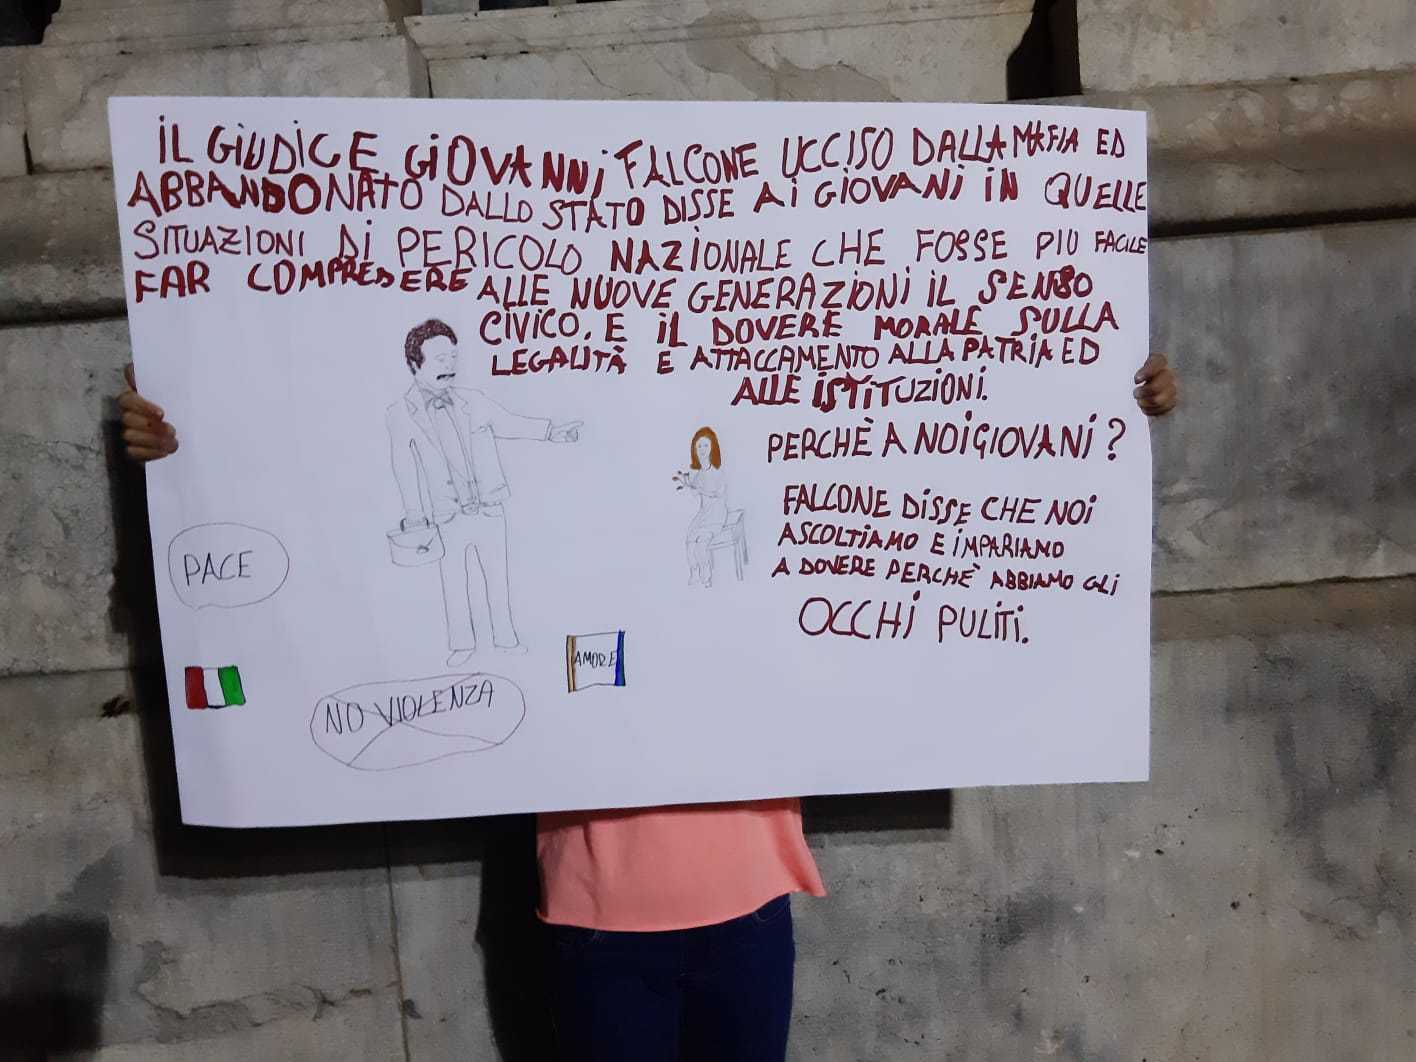 IL GIUDICE GIOVANNI FALCONE UCCISO DALLA MAFIA ED
ABBANDONATO DALLO STATO DISSE AI GIOVANI IN QUELLE
SITUAZIONI DI PERICOLO NAZIONALE CHE FOSSE PIU FACILE
FAR COMPRENDERE ALLE NUOVE GENERAZIONI IL SENSO
CIVICO. E IL DOVERE MORALE SULLA
LEGALITÀ E ATTACCAMENTO ALLA PATRIA ED
ALLE ISTITUZIONI.
PERCHÈ A NOI GIOVANI?
FALCONE DISSE CHE NOI
ASCOLTIAMO E IMPARIAMO
A DOVERE PERCHÈ ABBIAMO GLI
OCCHI PULITI.
PACE
AMORE
NO VIOLENZA